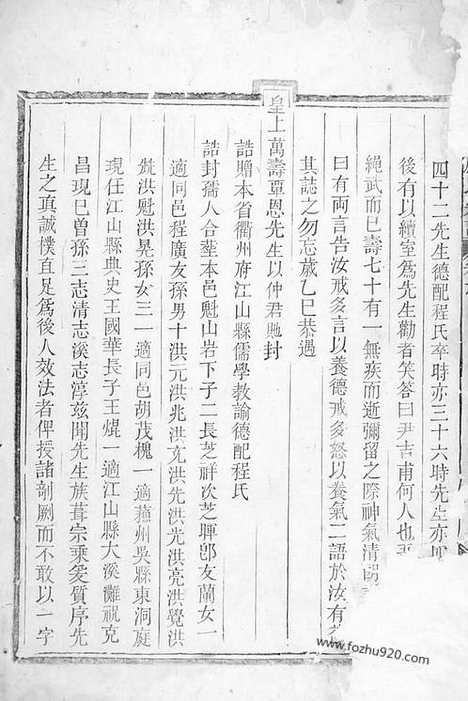 四十二先生德配程氏卒時亦三十六時先生亦
後有以續室爲先生勸者笑答曰尹吉甫何人也
繩武而已壽七十有一無疾而逝彌留之際神氣清
曰有兩言告汝戒多言以養德戒多怒以養氣二語於汝有
其誌之勿忘歲乙巳恭遇
皇上萬壽覃恩先生以仲君貤封
誥贈本省衢州府江山縣儒學教諭德配程氏
誥封孺人合塟本邑魁山岩下子二長芝祥次芝暉卽友蘭女一
適同邑程廣友孫男十洪元洪兆洪充洪先洪亮洪覺洪
洪魁洪晃孫女三一適同邑胡茂槐一適蘓州吳縣東洞庭
現任江山縣典史王國華長子王焜一適江山縣大溪灘祝克
昌現已曾孫三志清志溪志淳兹聞先生族葺宗乘爰質序先
生之真誠樸直足爲後人效法者俾授諸剞劂而不敢以一字
www.fozhu920.com